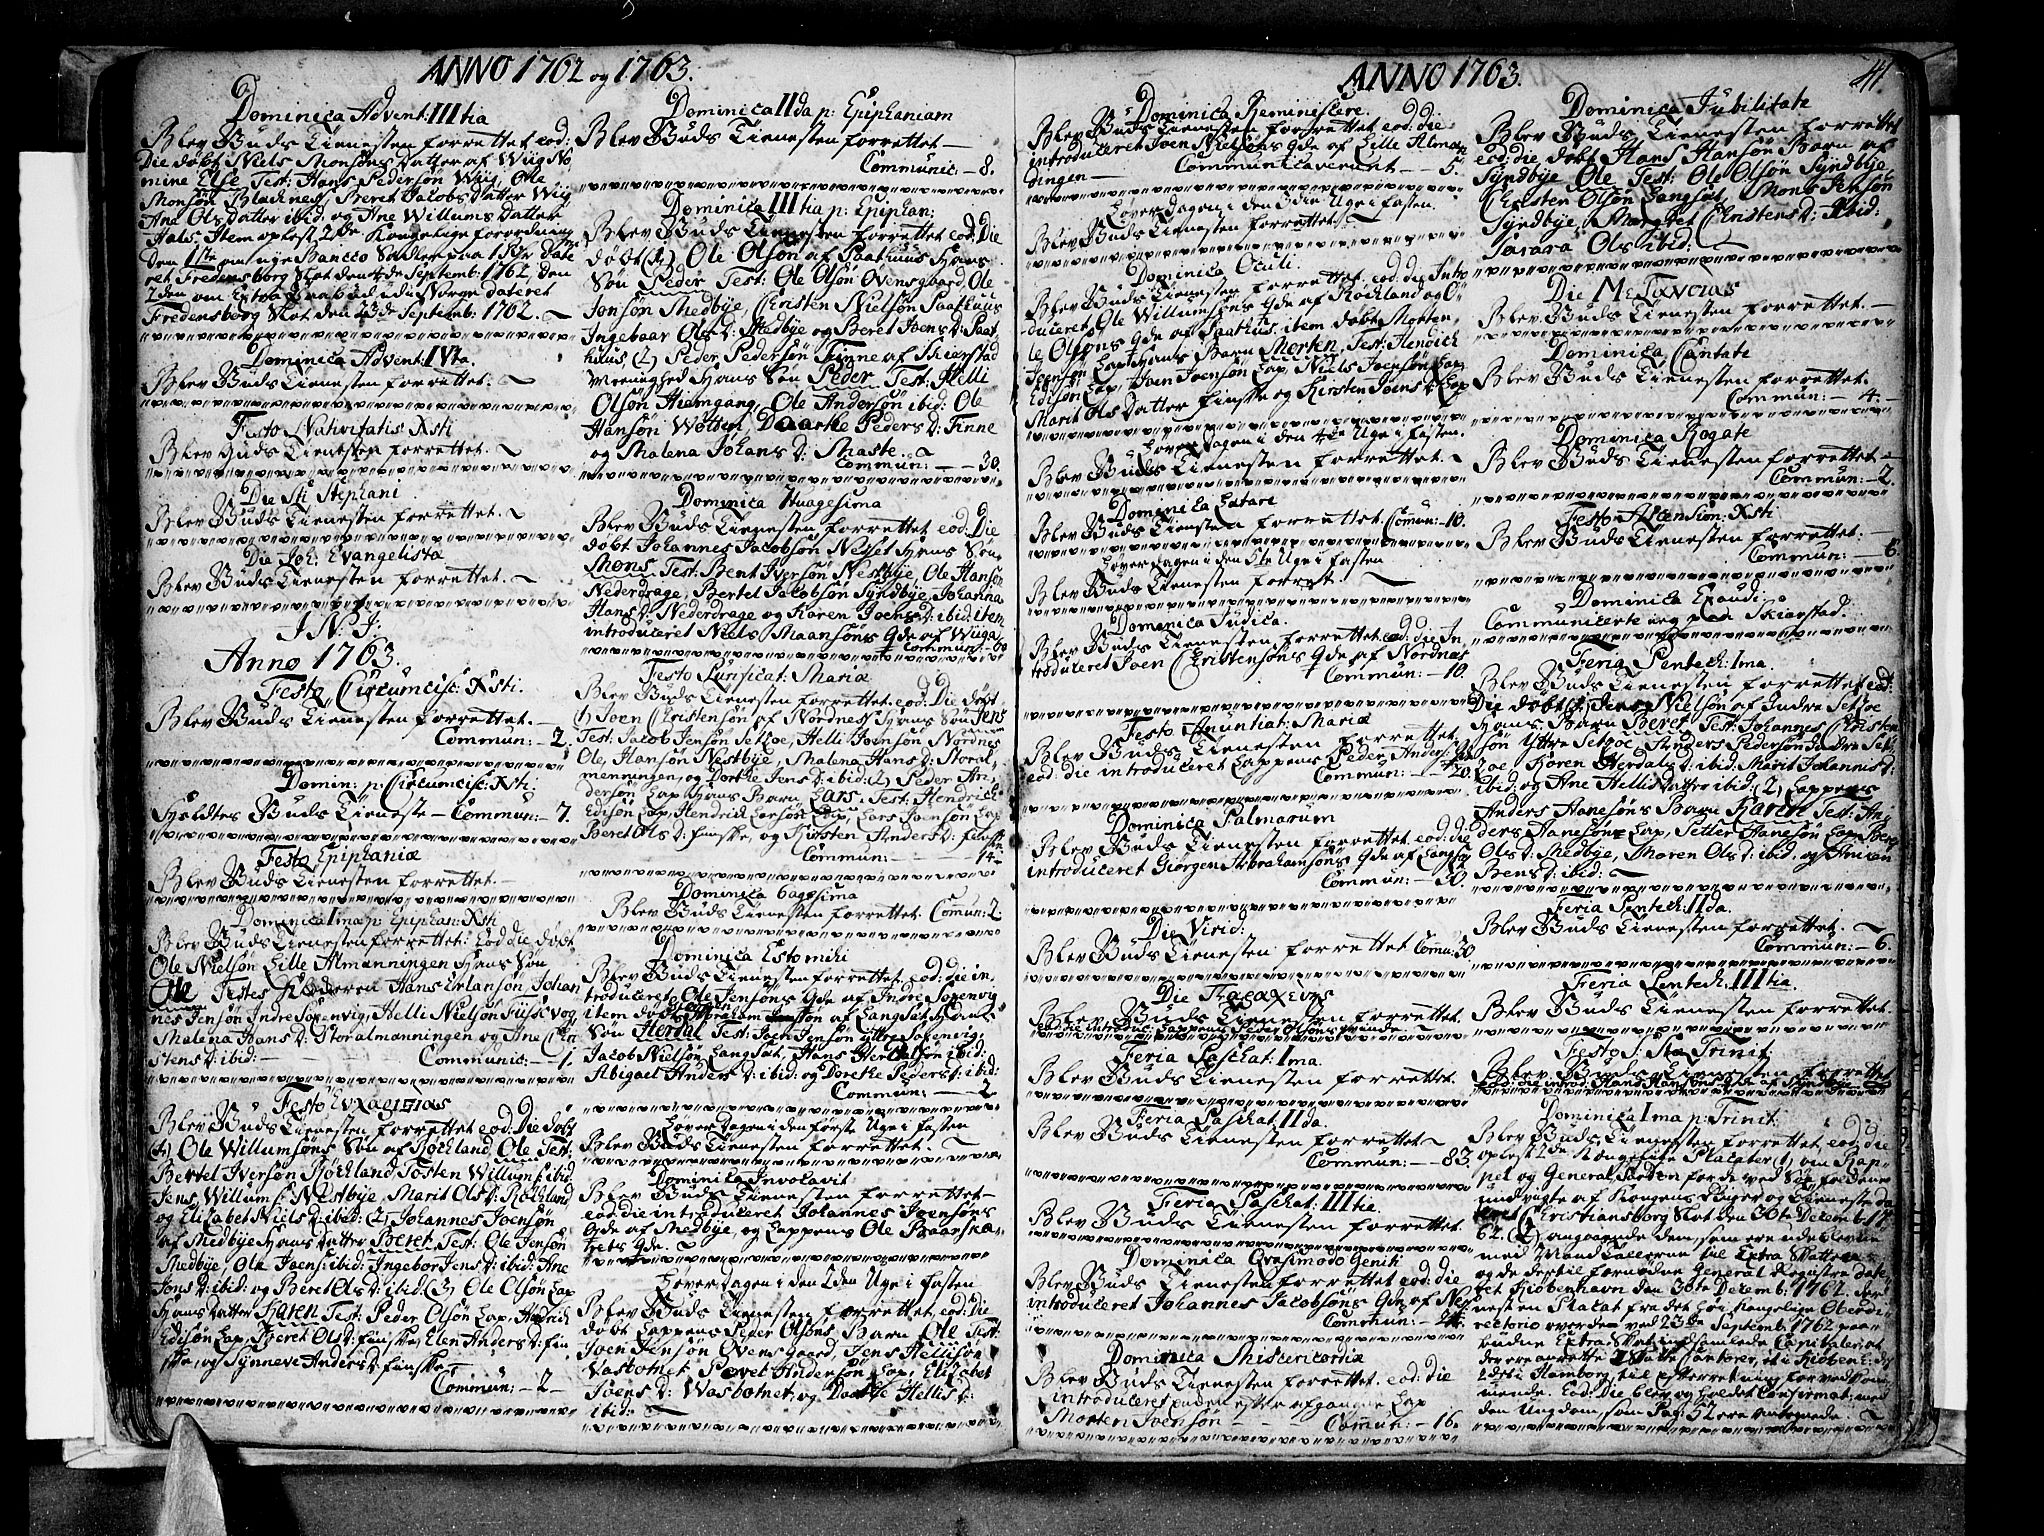 ANNO 1762 og 1763.
Dominica Advent: IIItia
Blev Guds Tienesten forrettet eod:
Die døbt Niels Monsøns Datter af Wiig No
mine Else Test: Hans Pedersøn Wiig, Ole
Monsøn Blachnes, Beret Jacobs Datter Wiig
Ane Ols datter ibid: og Ane Willums datter
Hals, Item oplest 2de Kongelige forordning
Den 1ste om nÿe Bancco Sedler paa 1 Rdr Date
ret Fredensborg Slot den 4de Septemb: 1762. den
2den om Extra Skatt udi Norge dateret
Fredensborg Slot den 23de Septemb: 1762.
Dominica Advent: IVta
Blev Guds Tienesten forrettet.
Festo Nativitatis Xsti
Blev Guds Tienesten forrettet.
Die Sti Stephani
Blev Guds Tienesten forrettet.
Die Joh: Evangelistæ
Blev Guds Tienesten forrettet.
I. N. J:
Anno 1763.
Festo Circumcis: Xsti.
Blev Guds Tienesten forrettet.
Commun: - 2.
Domin: p: Circumcis: Xsti:
Holdtes Guds Tieneste - Commun: - 7.
Festo Epiphaniæ
Blev Guds Tienesten forrettet.
Dominica Ima p: Epiphan: Xsti
Blev Guds Tienesten forrettet: Eod die døbt
Ole Nielsøn Lille Almanningen Hans Søn
Ole Testes Hans Erlansøn Johan
nes Jensøn Indre Sørenvig, Helli Nielsøn
Malena Hans D: Storalmanningen og Ane Chri
stens D: ibid: - Communic: - 1.
Festo
Blev Guds Tienesten forrettet eod: Die døbt
(1) Ole Willumsøns Søn af Røckland, Ole Test:
Bertel Iversøn Røckland, Tosten Willums: ibid:
Jens Willums: Nestbÿe, Marit Ols D: Røckland
og Elizabet Niels D: ibid: (2) Johannes Joensøn
af Medbÿe Hans datter Beret Test: Ole Jensøn
Medbÿe, Ole Joens: ibid: Ingebor Jens D: ibid: Ane
Jons D: ibid: og Beret Ols D: ibid: (3) Ole Olsøn Lap
Hans datter Karen Test: Peder Olsøn Lap, Hendrich
Edisøn Lap, Beret Ols D: finske, Elen Anders D: fin
ske, og Sÿnneve Anders D: finske.
Commun: - 2 -
Dominica IIda p: Epiphaniam
Blev Guds Tienesten forrettet -
Communic: - 8.
Dominica IIItia p: Epiphan:
Blev Guds Tienesten forrettet eod: Die
døbt (1) Ole Olsøn af Saathuus Hans
Søn Peder Test: Ole Olsøn Ovensgaard, Ole
Jonsøn Medbÿe, Christen Nielsøn Saathuus
Ingebaar Ols D: Medbÿe og Beret Joens D: Saat
huus, (2) Peder Pedersøn Finne af Skierstad
Meenighed Hans Søn Peder Test: Helli
Olsøn Hiemgang, Ole Andersøn ibid: Ole
Hansøn Wotten, Daarte Peders D: Finne
og Malena Johans D: Maste.
Commun: - - 30.
Dominica 7tuagesima
Blev Guds Tienesten forrettet eod: Die
døbt Johannes Jacobsøn Nesset Hans Søn
Mons. Test: Bent Iversøn Nestbÿe, Ole Hansøn
Nederdrage, Bertel Jacobsøn Sÿndbÿe, Johanna
Hans D: Nederdrage og Karen Joens D: ibid: item
introduceret Niels Maansøns Qde af Wiiga
Commun: - 8
Festo Purificat: Mariæ
Blev Guds Tienesten forrettet. eod: Die døbt
(1) Joen Christensøn af Nordnes Hans Søn Jens
Test: Jacob Jensøn Setzoe, Helli Joensøn Nordnes
Ole Hansøn Nestbÿe, Malena Hans D: Storal
menningen, og Dortke Jens D: ibid: (2) Peder An
dersøn Lap Hans Barn, Lars. Test: Hendrich
Edisøn Lap, Hendrich Larsøn Lap, Lars Joensøn Lap
Beret Ols D: finske, og Kirsten Anders D: finske
Commun: - - - 14 -
Dominica 6agesima
Blev Guds Tienesten forrettet. Comun: 2
Dominica Estomihi
Blev Guds Tienesten forrettet, eod: die in
troduceret Ole Jensøns Qde af Indre Sørenvig
item døbt Abraham søn af Langset Hans
Søn Herdal Test: Joen Jensøn Ÿttre Sørenvig
Jacob Nielsøn Langset, Hans ibid:
Abigael Anders D: ibid: og Dortke Peders D: ibid:
Commun: - 2
Høver Dagen i den første Uge i fasten
Blev Guds Tienesten forrettet.
Dominica Invocavit
Blev Guds Tienesten forrettet -
eod: die introduceret Johannes Joensøns
Qde af Medbÿe, og Lappens Ole Baarska
frets Qde.
Høver Dagen i den 2den Uge i fasten
Blev Guds Tienesten forrettet, eod: Die
døbt Lappens Peder Olsøns Barn Ole Test:
Joen Jensøn Ovensgaard, Jens Hellisøn
Vasbotnet Povel Andersøn Lap, Elizabet
Joens D: Wasbotnet, og Daarte Hellis D:
ibid:
ANNO 1763.
41.
Dominica Reminiscere.
Blev Guds Tienesten forrettet eod: die
introduceret Joen Nielsøns Qde af Lille Alman
dingen - Communicaverunt - 5.
Høver Dagen i den 3die Uge i fasten.
Blev Guds Tienesten forrettet.
Dominica Oculi.
Blev Guds Tienesten forrettet. eod: die Intro
duceret Ole Willumsøns Qde af Røckland og O
le Olsøns Qde af Saathus, item døbt Morten
Joensøn Lap Hans Barn Morten. Test: Hendrich
Edisøn Lap, Joen Joensøn Lap, Niels Joensøn Lap
Marit Ols Datter finske og Kirsten Joens D: Lap
Høver Dagen i den 4de Uge i fasten.
Blev Guds Tienesten forrettet.
Dominica Lætare
Blev Guds Tienesten forrettet. Comun: 10.
Høver Dagen i den 5te Uge i fasten
Blev Guds Tienesten forret.
Dominica Judica.
Blev Guds Tienesten forrettet: eod: die In
troduceret Joen Christensøns Qde af Nordnæs
Commun: - 10.
Festo Anuntiat: Mariæ
Blev Guds Tienesten forrettet.
eod: die introduceret Lappens Peder Andersøns
Commun: - 20.
Dominica Palmarum
Blev Guds Tienesten forrettet eod: die
introduceret Giørgen Abrahamsøns Qde af Langset
Commun: - 50.
Die Virid:
Blev Guds Tienesten forrettet Comu: 30
Die Παρασκευης
Blev Guds Tienesten forrettet.
eod: die introduc: Lappens Peder Olsøns qvinde.
Feria Paschat: Ima
Blev Guds Tienesten forrettet.
Feria Paschat IIda.
Blev Guds Tienesten forrettet
Commun: - 83.
Feria Paschat: IIItia
Blev Guds Tienesten forrettet.
Dominica Qvasimodo Geniti
Blev Guds Tienesten forrettet eod: die
introduceret Johannes Jacobsøns Qde af Nes
Commun: - 24.
Dominica Misericordiæ
Blev Guds Tienesten forrettet. eod: die
introduceret enden efter afgangne Lap
Morten Joensøn - Comun: - 16.
Dominica Jubilitate
Blev Guds Tienesten forrettet
eod: die døbt Hans Hansøn Barn af
Sÿndbÿe Ole Test: Ole Olsøn Sÿndbÿe
Christen Olsøn Langset Mons Jensøn
Sÿndbÿe, Margret Christens D: ibid:
Sarara Ols ibid:
Die
Blev Guds Tienesten forrettet.
Dominica Cantate
Blev Guds Tienesten forrettet.
Commun: - 4. -
Dominica Rogate
Blev Guds Tienesten forrettet -
Commun: - 2.
Festo Ascension: Xsti
Blev Guds Tienesten forrettet.
Commun: - 6.
Dominica Exaudi
Communicerte jeg paa Skierstad.
Feria Pentech: Ima.
Blev Guds Tienesten forrettet eod:
Die døbt (1) Jens Nielsøn af Indre Setzoe
Hans Barn Beret Test: Johannes Christen
søn Ÿttre Setzoe, Anders Pedersøn Indre Set
zoe, Karen Herdals D: ibid: Marit Johannis D:
ibid: og Ane Hellis Datter ibid: (2) Lappens
Anders Hansøns Barn Karen Test: An
ders Hansøn Lap, Setler Hansøn Lap Berg
Ols D: Medbÿe, Maren Ols D: ibid. og
Bens D: ibid:
Feria Pentech: IIda.
Blev Guds Tienesten forrettet.
Commun: - 6.
Feria Pentech: IIItia.
Blev Guds Tienesten forrettet.
Festo S: Stæ Trinit:
Blev Guds Tienesten forrettet
eod: die introd: Hans Hansøns Qde af Sÿndbÿe
Dominica Ima p: Trinit:
Blev Guds Tienesten forrettet, eod: die
oplest 2de Kongelige Placater (1) om Rap-
pel og General Pardon for de ved Søe folderne
undvigte af Kongens Riger og Tieneste da
teret Christiansborg Slot den 30te Decemb: 17
62. (2) angaaende dem, som ere udeblevne
med Mandtallerne til Extra Skatten
og de dertil fornødne General Registre Date
ret Kiøbenhavn den 30te Decemb: 1762. der
nesten Placat fra det høi Kongelige Oberdi
rectorio over den ved 23de Septemb: 1762 paa
budne Extra Skat indsamlede Capitaler, at
der ere anrettede 2 Skatte Contorer, et i Kiøbenh: og
2det i Hamborg, til efterretning for vedkom
mende. Eod: Die blev og holdet Confirmat: med
den Ungdom, som Pag: 52 ere antegnede.